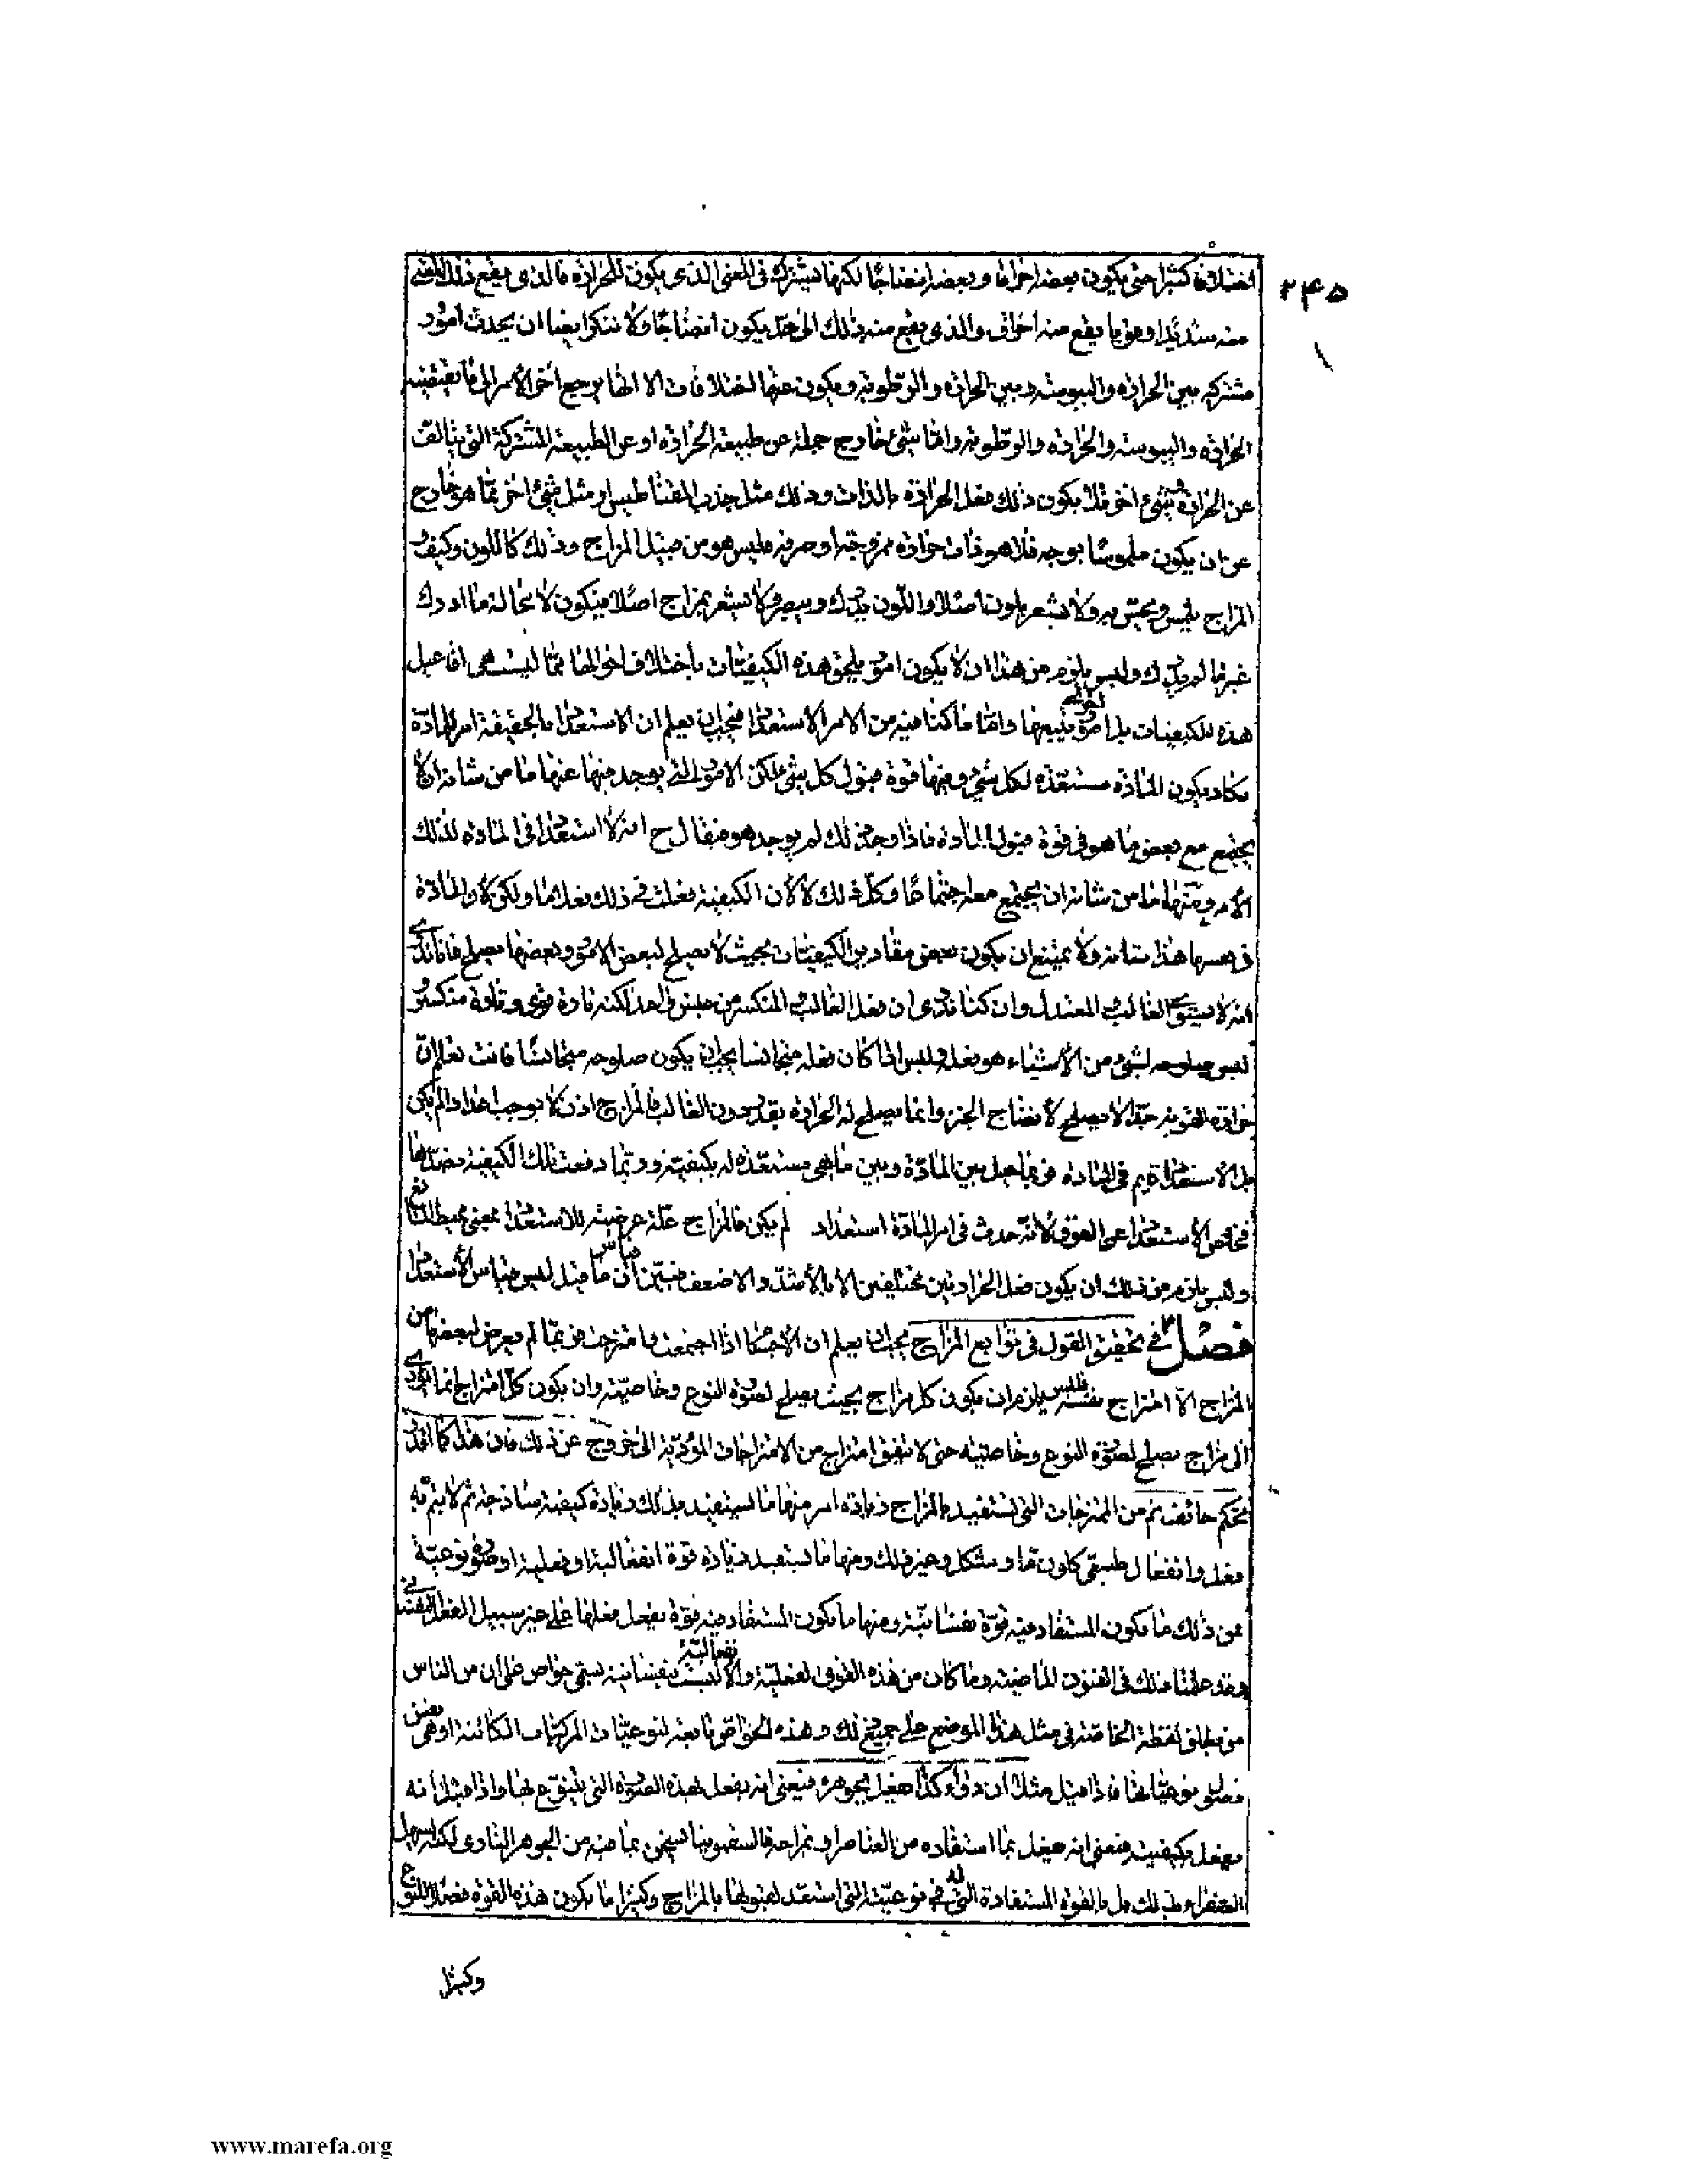 ۲۴۵
اختلافا كثيرا حتى يكون بعضه احراقا وبعضه انضاجا لكنها تشترك فى المعنى الذى يكون للحرارة فالذى يقع ذلك المعنى
منه شديدا وهو ما يقع منه احراق والذى يقع منه ذلك الى حد يكون انضاجا ولا ننكر ايضا ان يحدث امور
مشتركه بين الحرارة واليبوسة وبين الحرارة والرطوبة ويكون عنها اختلافات الا انها يرجع آخر الأمر الى ما يقتضيه
الحرارة واليبوسة والحرارة والرطوبة واما شئ خارج جملة عن طبيعة الحرارة او عن الطبيعة المشتركة التى يتألف
عن الحرارة وشئ اخر فلا يكون ذلك فعل الحرارة بالذات وذلك مثل جذب المغناطيس او مثل شئ اخر مما هو خارج
عن ان يكون ملموسا بوجه فلا هو ذات حرارة ممزوجة او صرفة فليس هو من قبيل المزاج وذلك كاللون وكيف و
المزاج يلمس ويحس به ولا يشعر بلون اصلا واللون يدرك ويبصر ولا يشعر بمزاج اصلا فيكون لا محالة ما ادرك
غير ما لم يدرك وليس يلزم من هذا ان لا يكون امور يلحق هذه الكيفيات باختلاف احوالها مما ليست هى افاعيل
هذه الكيفيات بل امور اخرى يتبعها واما ما كنا فيه من الامر الاستعداد فيجب ان يعلم ان الاستعداد بالحقيقة امر للمادة
يكاد يكون المادة مستعدة لكل شئ وفيها قوة قبول كل شئ لكن الامور التى يوجد فيها عنها ما من شأنه ان لا
يجتمع مع بعض ما هو فى قوة قبول المادة فاذا وجد ذلك لم يوجد هو فيقال ح انه لا استعداد فى المادة لذلك
الأمر ومنها ما من شأنه ان يجتمع معه اجتماعا وكل ذلك لا لأن الكيفية فعلت فى ذلك فعلا ما ولكن لأن المادة
فى نفسها هذا شأنه ولا يمتنع ان يكون بعض مقادير الكيفيات بحيث لا يصلح لبعض الامور وبعضها يصلح فانا نرى
انه لا يستوى الغالب المعتدل وان كنا نرى ان فعل الغالب المنكسر من جنس واحد لكنه تارة قوى وتارة منكسر و
ليس صلوحه لشئ من الأشياء هو فعله وليس اذا كان فعله متجانسا يجب ان يكون صلوحه متجانسا فانت تعلم ان
حرارة القوية جدا لا يصلح لانضاج الخبز وانما يصلح له الحرارة بقدر دون الغالب فالمزاج اذن لا يوجب اعدادا لم يكن
بل الاستعداد قايم فى المادة فربما حيل بين المادة وبين ما هى مستعدة له بكيفية وربما دفعت تلك الكيفية بضدها
فخلص الاستعداد عن العوق لا انه حدث فى امر المادة استعداد لم يكن فالمزاج علة عرضية للاستعداد بمعنى محيط المانع
وليس يلزم من ذلك ان يكون فعل الحرارتين مختلفين الا بالأشد والاضعف فتبين ان قياس ما قيل ليس قياس الاستعداد
فصل فى تحقيق القول فى توابع المزاج يجب ان يعلم ان الاجسام اذا اجتمعت وامتزجت فربما لم يعرض لبعضها من
المزاج الا امتزاج نفسه فليس يلزم ان يكون كل مزاج بحيث يصلح لصورة النوع وخاصيته وان يكون كل امتزاج انما يؤدى
الى مزاج يصلح لصورة النوع وخاصيته حتى لا يتفق امتزاج من الامتزاجات المؤدية الى خروج عن ذلك فان هذا كما اقدر
تحكم حائف ثم من الممتزجات التى تستفيد بالمزاج زيادة امر منها ما يستفيد بذلك زيادة كيفية ساذجة ثم لا يتم به
فعل وانفعال طبيعى كلون ما وشكل وغير ذلك ومنها ما يستفيد زيادة قوة انفعالية او فعلية او صورة نوعية
فمن ذلك ما يكون المستفاد فيه قوة نفسانية ومنها ما يكون المستفاد فيه قوة يفعل فعلها على غير سبيل الفعل النفسانى
وقد علمنا منك فى الفنون الماضية وما كان من هذه القوى الفعلية والانفعالية ليست نفسانية تسمى خواص على ان من الناس
من يطلق لفظة الخاصة فى مثل هذا الموضع على جميع ذلك وهذه الخواص تابعة لنوعيات المركبات الكائنة او هى نفس
فصول نوعياتها فاذا قيل مثلا ان دواء كذا يفعل بجوهره فيعنى انه يفعل بهذه الصورة التى يتنوع بها واذا قيل انه
يفعل بكيفيته فيعنى انه يفعل بما استفاده من العناصر او بمزاجه فالسقمونيا يسخن بما فيه من الجوهر النارى لكنه يسهل
الصفراء لا بذلك بل بالقوة المستفادة التى له فى نوعيته التى استعد لقبولها بالمزاج وكثيرا ما يكون هذه القوة فصلا للنوع
وكثيرا
www.marefa.org